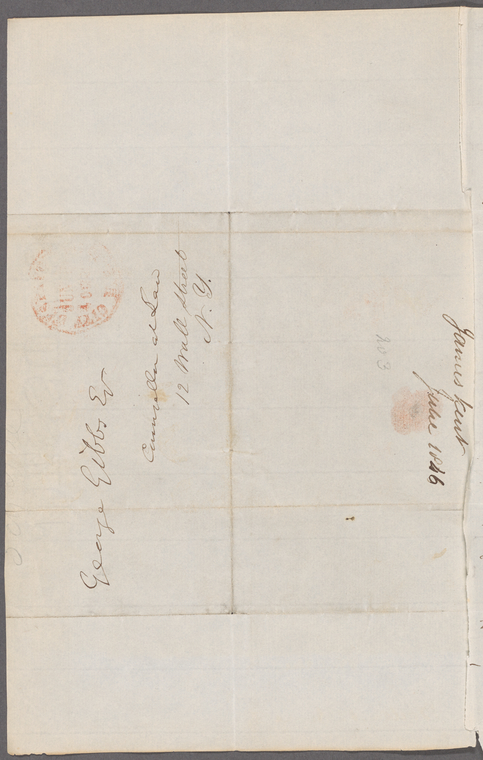 George Gibbs Es
Counsellor at Law
12 Wall Street
N. Y.
James Kent
June 1846